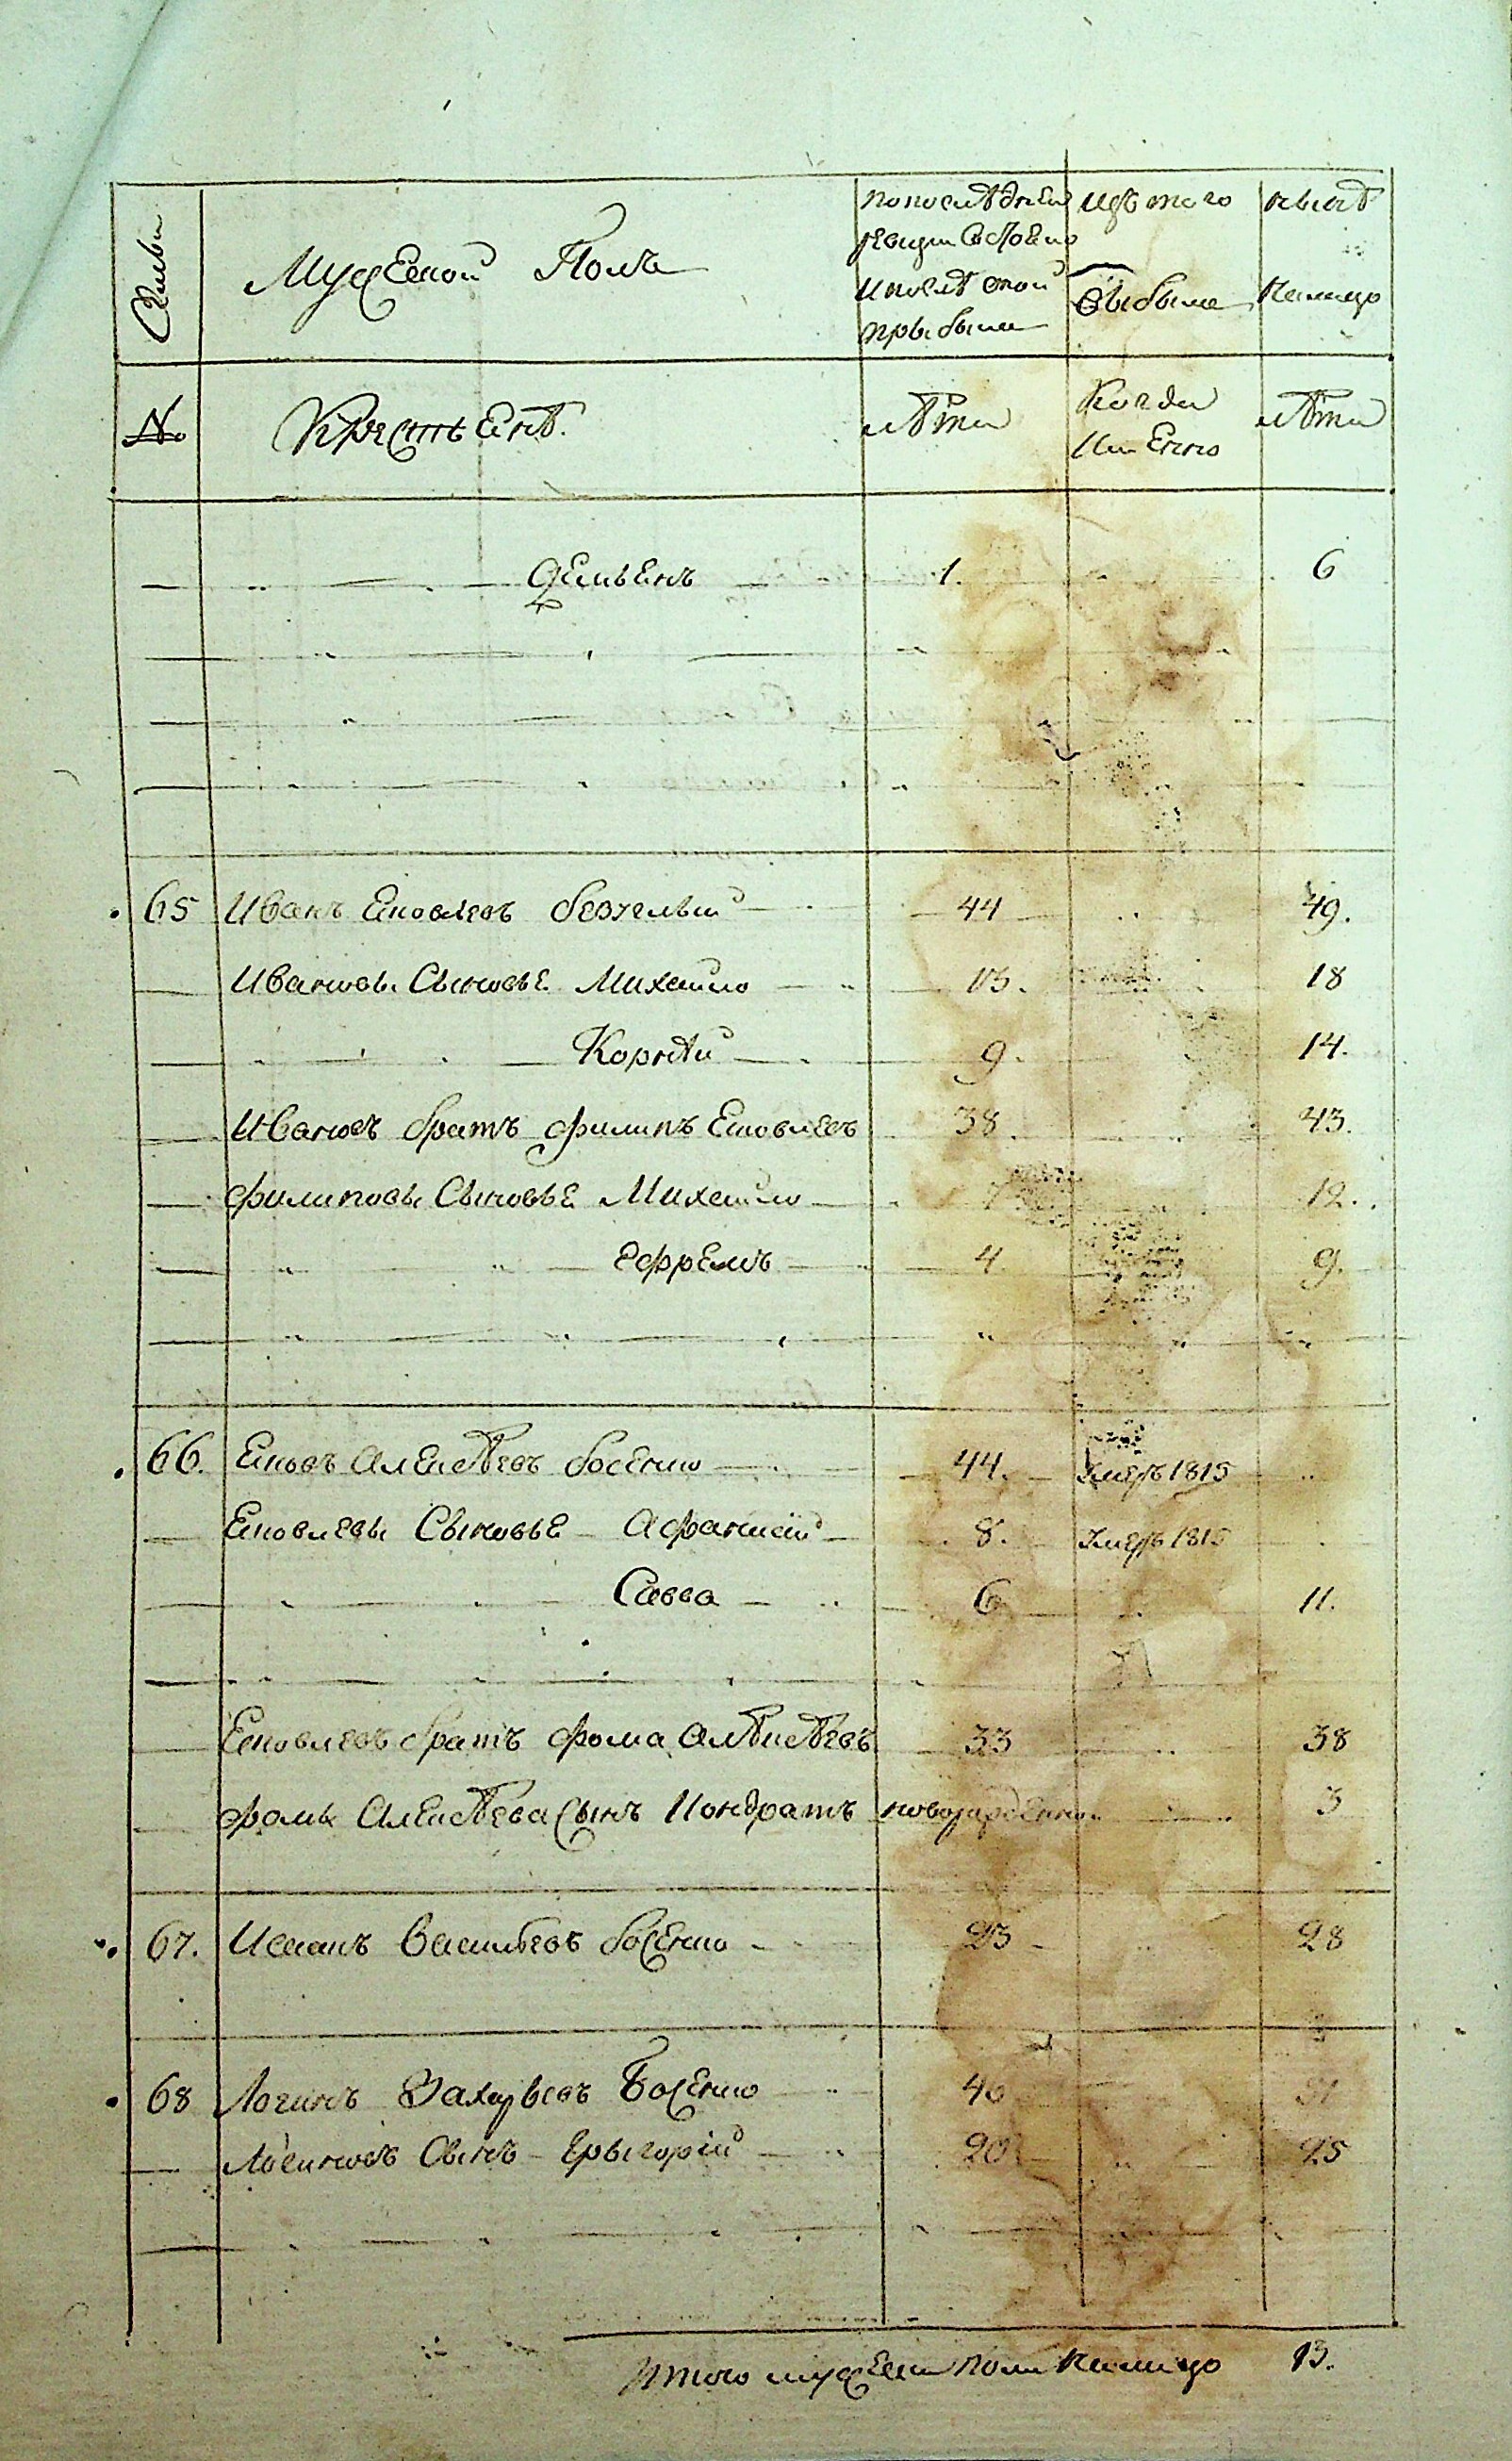 Семьи
Мужеской Полъ
попоследней
ревизiи Состояло
ипослѣ той
прыбыло
изъ того
выбыло
нынѣ
налицо
№
Крестьянѣ.
лѣта
Когда
Именно
лѣта
Демьянъ 1. 6
65 Иванъ Яковлевъ 44 49.
Ивановы Сыновье Михайло 13. 18
Корнѣй 9. 14.
Ивановъ братъ Филипъ Яковлевъ 38. 43.
Филиповы Сыновье Михайло 7 12.
Ефремъ 4. 9.
66. Яковъ Алексѣевъ Босенко 44. Умеръ 1815
Яковлевы Сыновье Афанасiй 8. Умеръ 1815
Савва 6 11.
Яковлевъ братъ Фома Алѣксѣевъ 33 38
Фомы Алексѣева Сынъ Кондратъ новорожденной 3
67. Исаакъ Васильевъ Босенко 23 28
68 Логинъ Захарьевъ Босенко 46 51
Логиновъ Сынъ Грыгорiй 20 25
Итого мужеска пола налицо 13.